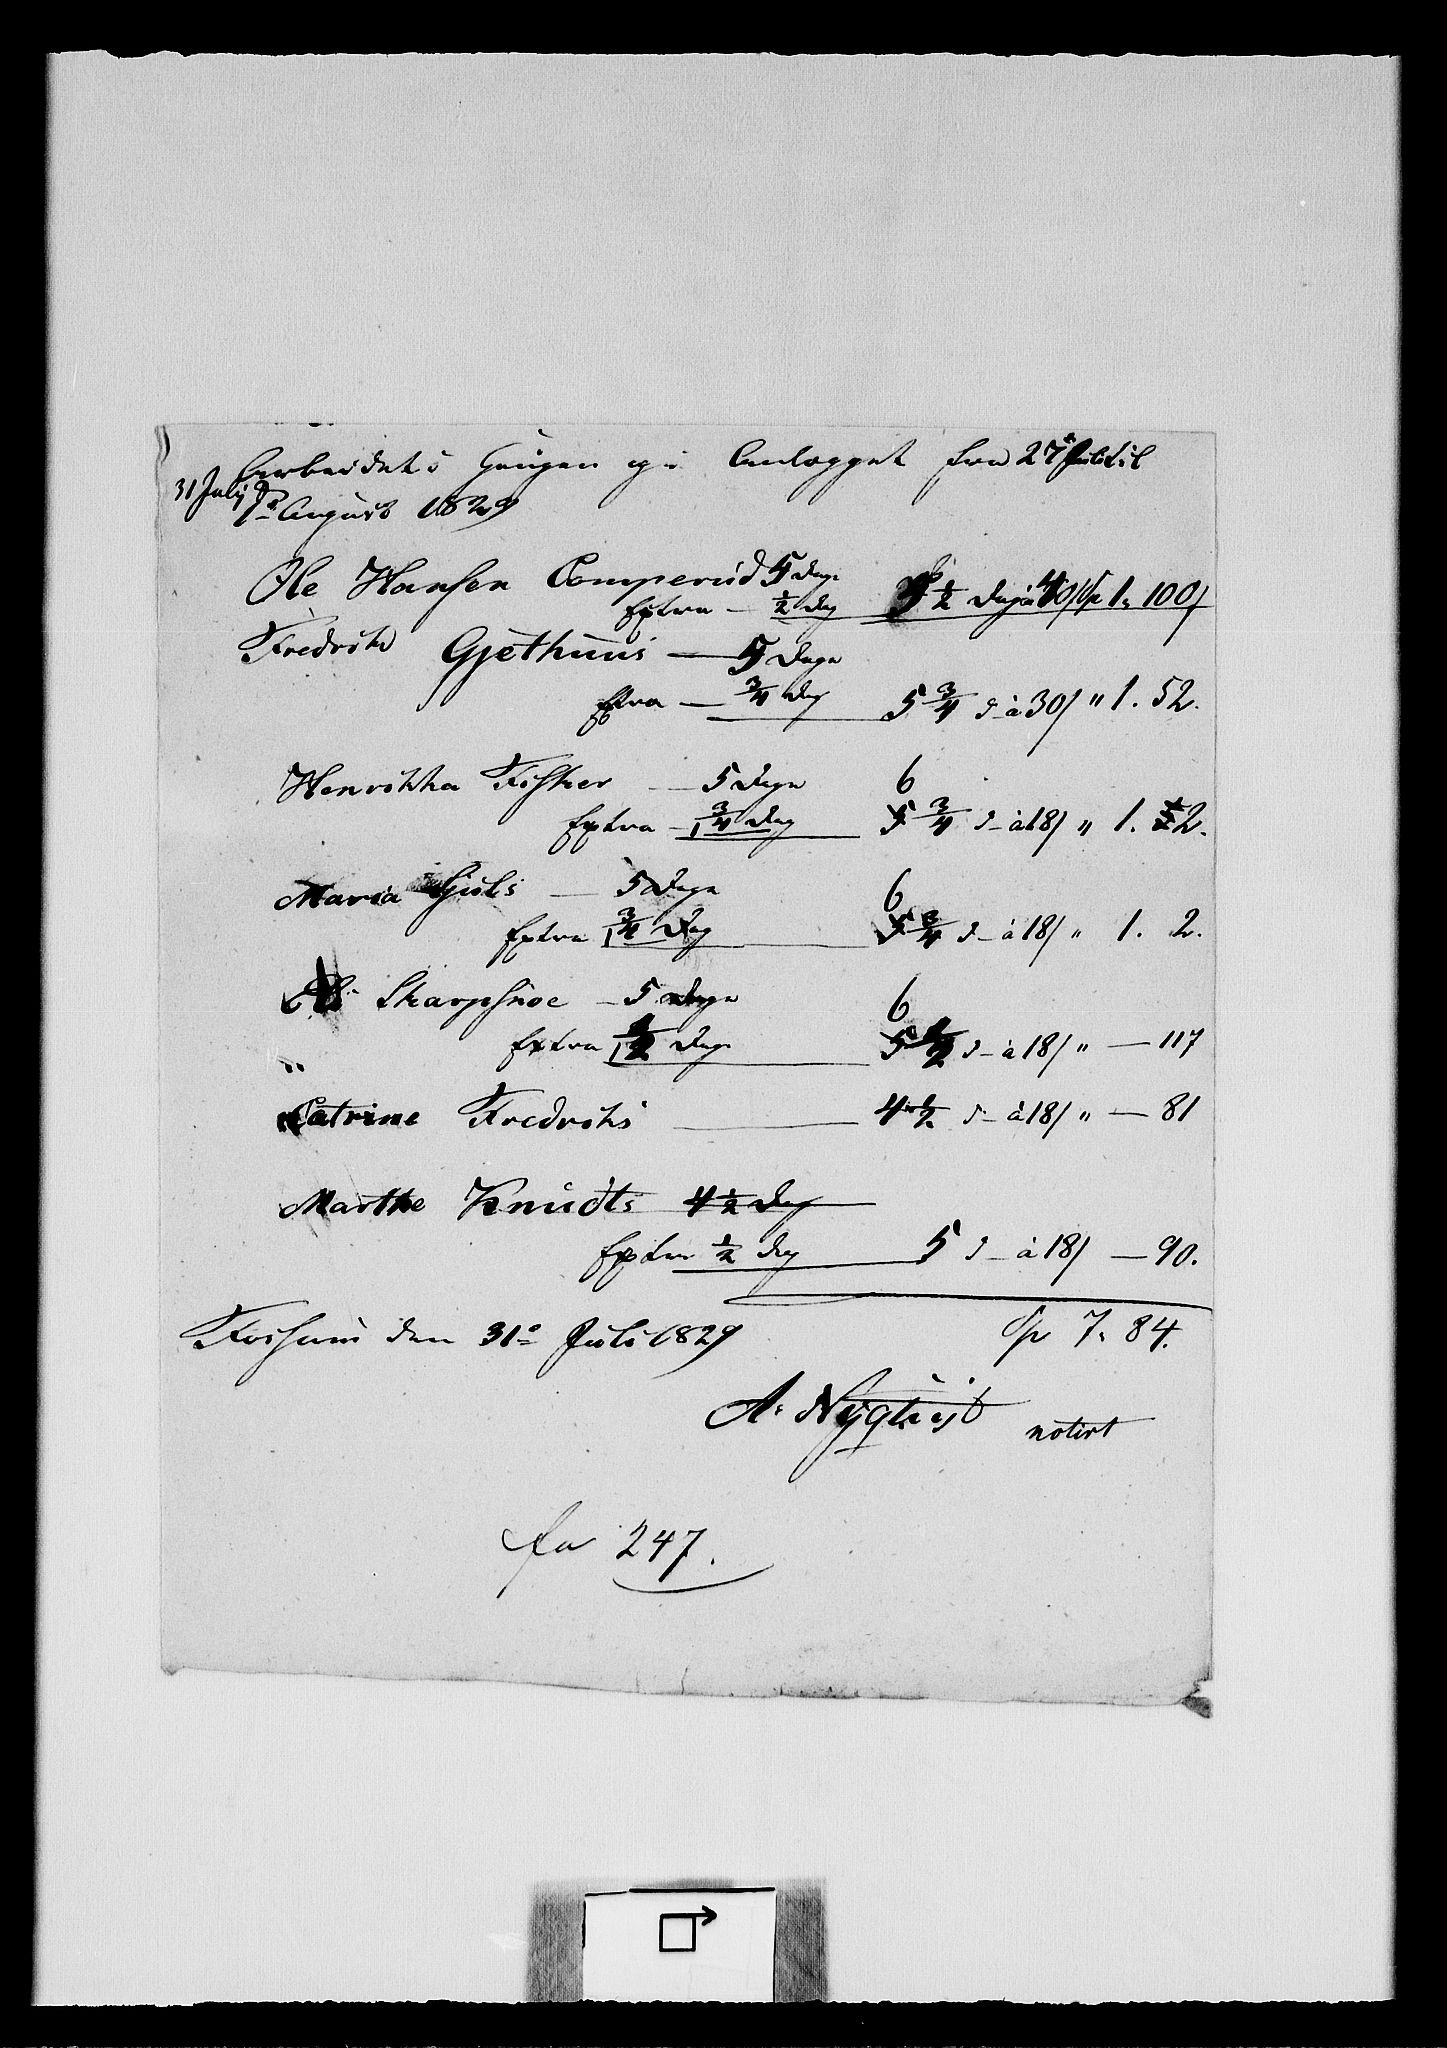 Arbeidet i Haugen og i Anlægget fra 27d Juli til
31 July
7de August 1829
Ole Hansen Comperud 5 Dage
Extra - 1/2 Dag 5 1/2 Dag à 40/ Sp 1 " 100/
Fredrik Gjethuus — 5 Dage
Extra — 3/4 Dag 5 3/4 d - à 30/ " 1 . 52.
Henrikka Fisker — 5 Dage 6
Extra - 1 3/4 Dag 3/4 d - à 18/ " 1. 2.
Maria Gjuls — 5 Dage 6
Extra 1 3/4 Dag 3/4 d - à 18/ " 1. 2.
Skarpsnoe - 5 Dage 6
Extra 1 1/2 Dag 1/2 d - à 18/ " — 117
Catrine Fredriks — 4 1/2 d - à 18/ " — 81
Marthe Knudts 4 1/2 Dag
Extra 1/2 Dag 5 d - à 18/ — 90.
Fossum den 31te Juli 1829 Sp 7 " 84.
A. Nyquist notirt
fa 247.